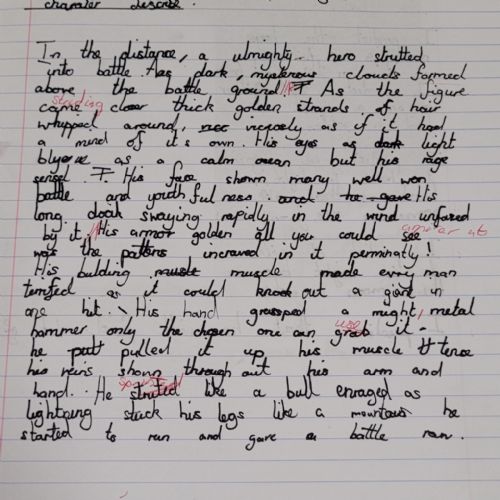 character describe.
In the distance, a almighty hero strutted
into battle. As dark, mysterous clouds formed
above the battle ground. // As the figure
standing
came closer thick golden strands of hair
whipped around, viciously as if it had
a mind of it's own. His eyes as light
blue as a calm ocean but his rage
sensed. His face shown many well won
battle and youthfulness. His
long cloak swaying rapidly in the wind unfazed
by it. // His armor golden all you could see
was the patterns incraved in it perminatly!
His bulding muscle made every man
terrified as it could knock out a giant in
one hit. His hand grassped a might, metal
hammer only the chosen one can grab it.
use
he pulled it up his muscle tense
his veins shown throughout his arm and
hand. He struted like a bull enraged as
lightning stuck his legs like a mountain he
started to run and gave a battle roar.